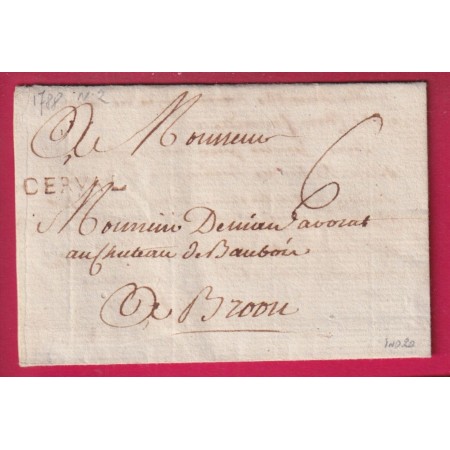 1788 N°2
A Monsieur
6
DERVAL
Monsieur Denieu avocat
au Chateau de Bauboir
A Broon
Ind 20